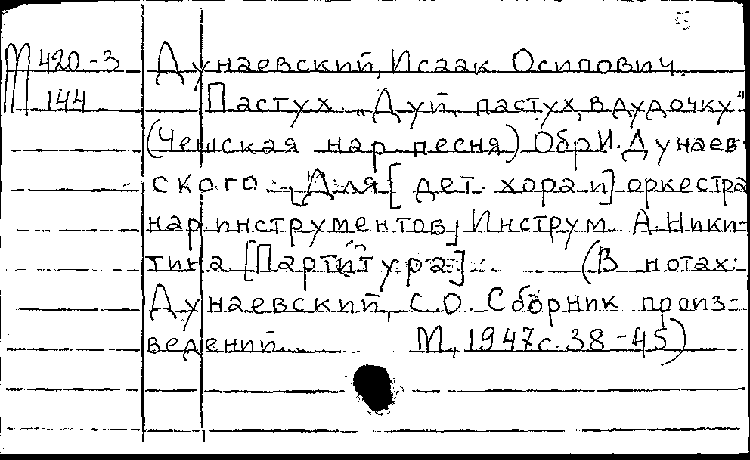 М 420-3 Дунаевский, Исаак Осипович.
144 Пастух. „Дуй, пастух, в дудочку"
(Чешская нар песня) Обр И. Дунаев-
ского. [Для [дет. хора и] оркестра
нар инструментов] Инструм А. Ники-
тина [Партитура]. (В нотах:
Дунаевский, С.О. Сборник произ-
ведений. М, 1947 с. 38-45)